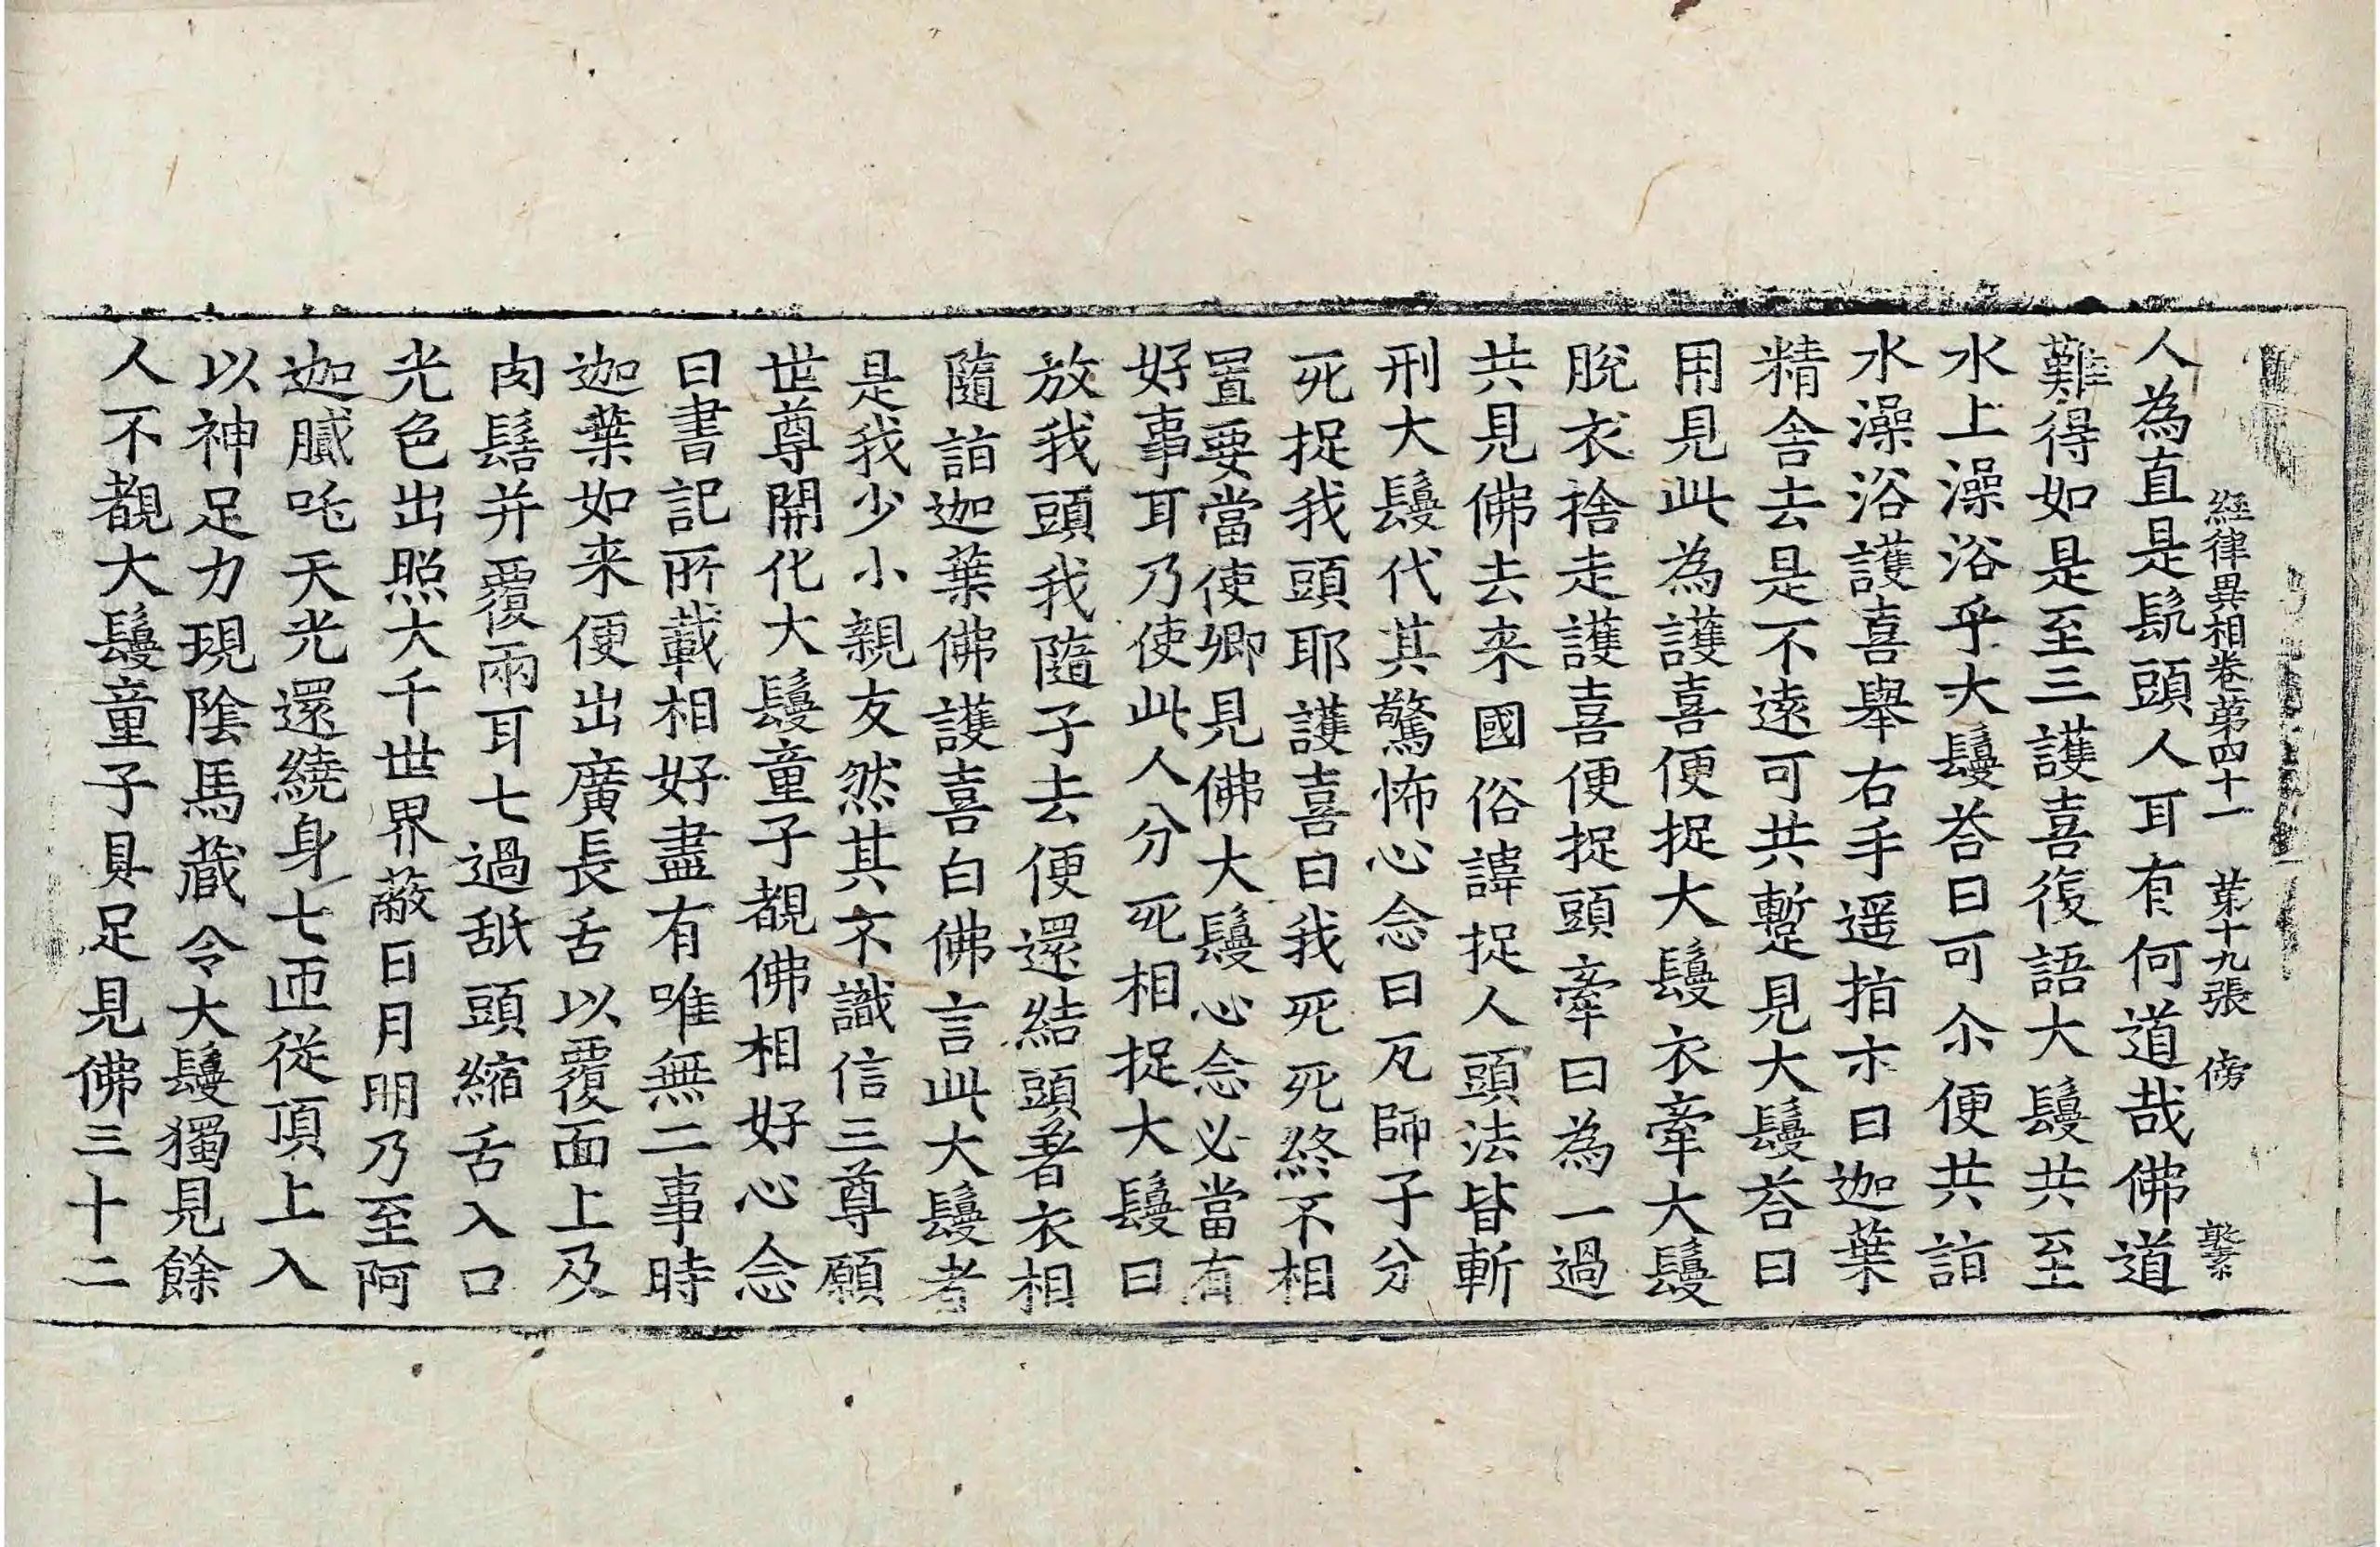 經律異相卷第四十一 第十九張 傍 繫
人為直是髡頭人耳有何道哉佛道
難得如是至三護喜復語大鬘共至
水上澡浴乎大鬘荅曰可尒便共詣
水澡浴護喜舉右手遥指示曰迦葉
精舍去是不遠可共蹔見大鬘荅曰
用見此為護喜便捉大鬘衣牽大鬘
脫衣捨走護喜便捉頭牽曰為一過
共見佛去来國俗諱捉人頭法皆斬
刑大鬘代其驚怖心念曰瓦師子分
死捉我頭耶護喜曰我死死終不相
置要當使卿見佛大鬘心念必當有
好事耳乃使此人分死相捉大鬘曰
放我頭我隨子去便還結頭著衣相
隨詣迦葉佛護喜白佛言此大鬘者
是我少小親友然其不識信三尊願
世尊開化大鬘童子覩佛相好心念
曰書記所載相好盡有唯無二事時
迦葉如来便出廣長舌以覆面上及
肉髻并覆兩耳七過舐頭縮舌入口
光色出照大千世界蔽日月明乃至阿
迦膩吒天光還繞身七匝從頂上入
以神足力現陰馬藏令大鬘獨見餘
人不覩大鬘童子具足見佛三十二